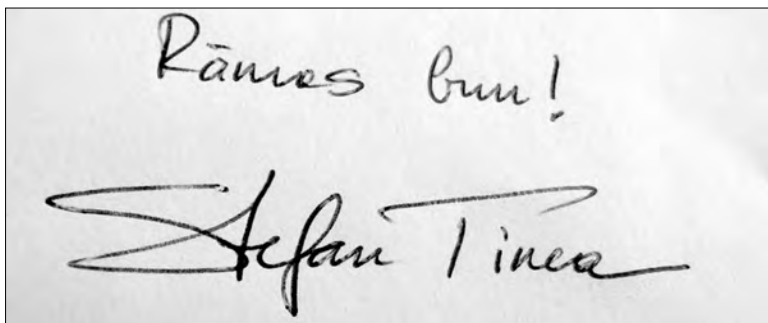 Rămas bun!
Stefan Tinca